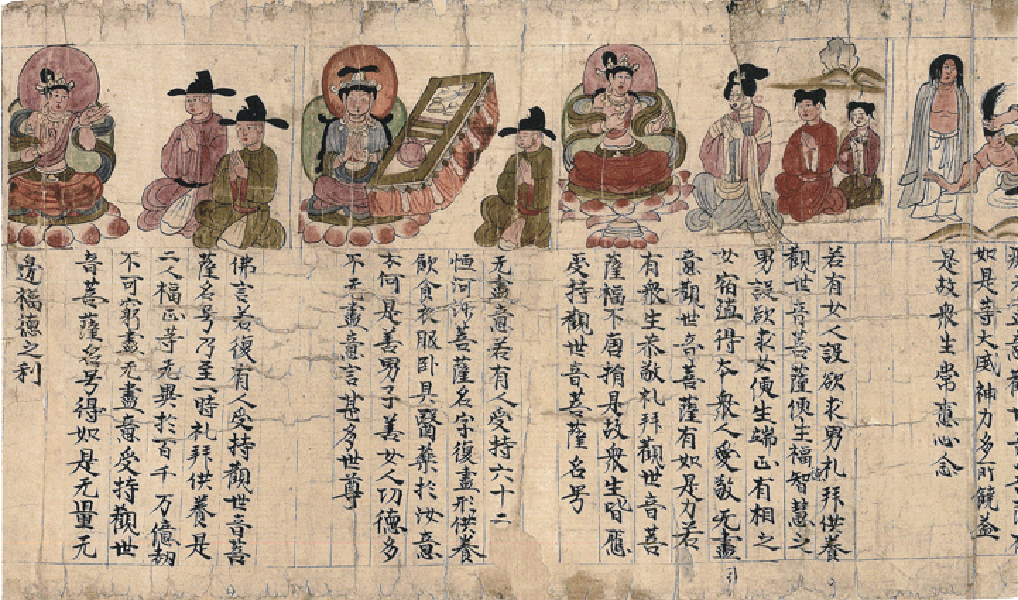 意觀世音菩薩有
如是等大威神力多所饒益
是故衆生常應心念
若有女人設欲求男礼拜供養
觀世音菩薩便生福智慧之
男設欲求女便生端正有相之
女宿殖得本衆人愛敬无盡
意觀世音菩薩有如是力若
有衆生恭敬礼拜觀世音菩
薩福不唐捐是故衆生皆應
受持觀世音菩薩名号
无盡意若有人受持六十二
恒河沙菩薩名字復盡形供養
飲食衣服卧具醫藥於汝意
云何是善男子善女人功德多
不无盡意言甚多世尊
佛言若復有人受持觀世音菩
薩名号乃至一時礼拜供養是
二人福正等无異於百千万億劫
不可窮盡无盡意受持觀世
音菩薩名号得如是无量无
邊福德之利